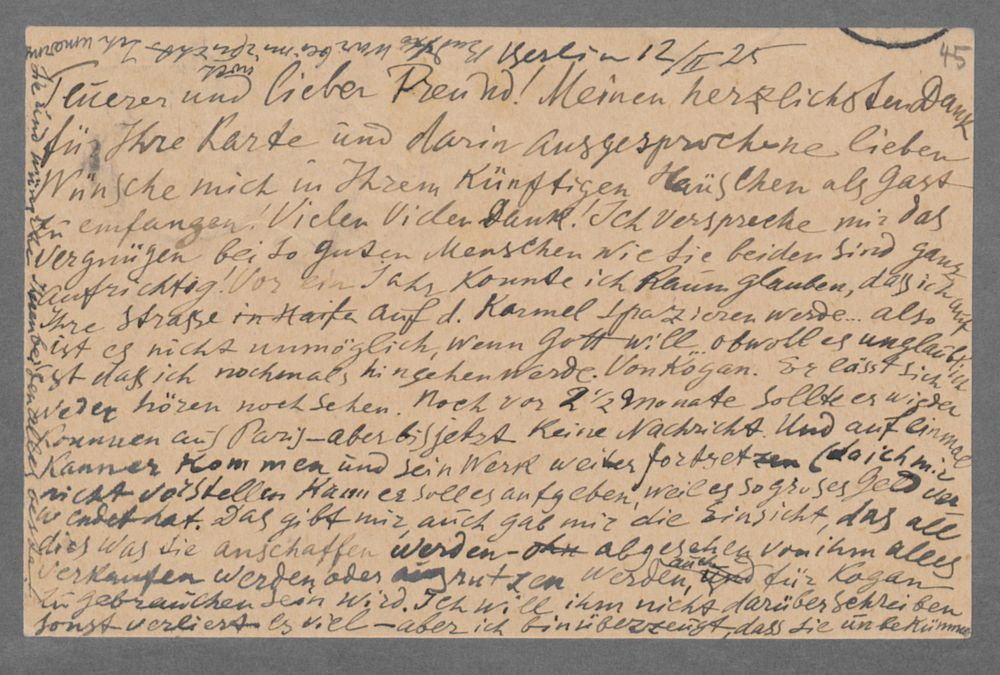 Berlin 12/II 25
Teuerer und lieber Freund! Meinen herzlichsten Dank
für Ihre Karte und darin ausgesprochene lieben
Wünsche mich in Ihrem Künftigen Häuschen als Gast
zu empfangen! Vielen Vielen Dank! Ich verspreche mir das
Vergnügen bei so guten Menschen wie Sie beiden sind ganz
aufrichtig! Vor ein Jahr konnte ich Kaum glauben, dass ich auf
Ihre Strasse in Haifa auf d. Karmel spazzieren werde... also
ist es nicht unmöglich, wenn Gott will, obwoll es unglaublich
ist daß ich nochmals hingehen werde. Von Kogan. Er lässt sich
weder hören noch sehen. Noch vor 2½ Monate sollte er wieder
Kommen aus Paris – aber bis jetzt Keine Nachricht. Und auf einmal
Kann er Kommen und sein Werk weiter fortsetzen (da ich mir
nicht vorstellen Kann er soll es aufgeben, weil es so groses Geld ver-
wendet hat. Das gibt mir, auch gab mir die Einsicht, das all
dies was Sie anschaffen werden – abgesehen von ihm alles
verkaufen werden oder ausnutzen werden, auch für Kogan
zu gebrauchen sein wird. Ich will ihm nicht darüber schreiben
sonst verliert es viel – aber ich bin überzzeugt, dass Sie unbekümmer